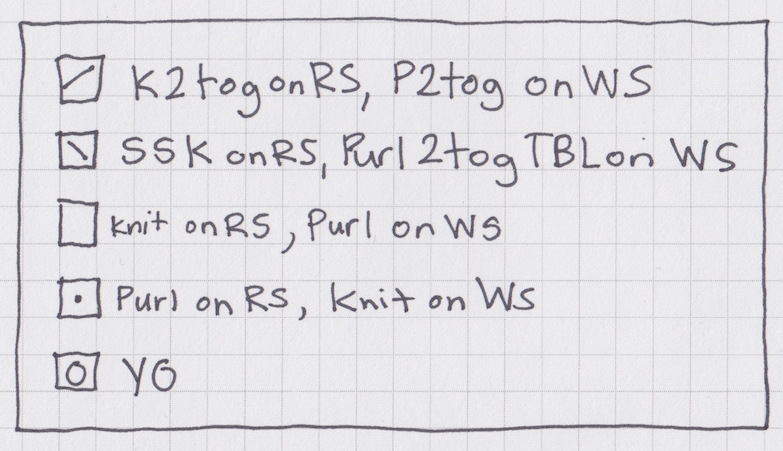 K2tog on RS, P2tog on WS
SSK on RS, Purl 2tog TBL on WS
knit on RS, Purl on WS
Purl on RS, Knit on WS
YO